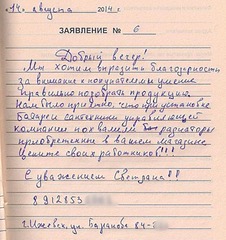 «14» августа 2014 г.
ЗАЯВЛЕНИЕ № 6
Добрый вечер!
Мы хотим выразить благодарность
за внимание к покупателям и умение
правильно подобрать продукцию.
Нам было приятно, что при установке
батареи сантехники управляющей
компании похвалили радиаторы
приобретенные в вашем магазине
Цените своих работников!!!
С уважением Светлана!!
8912853
г. Ижевск, ул. Баранова 84-